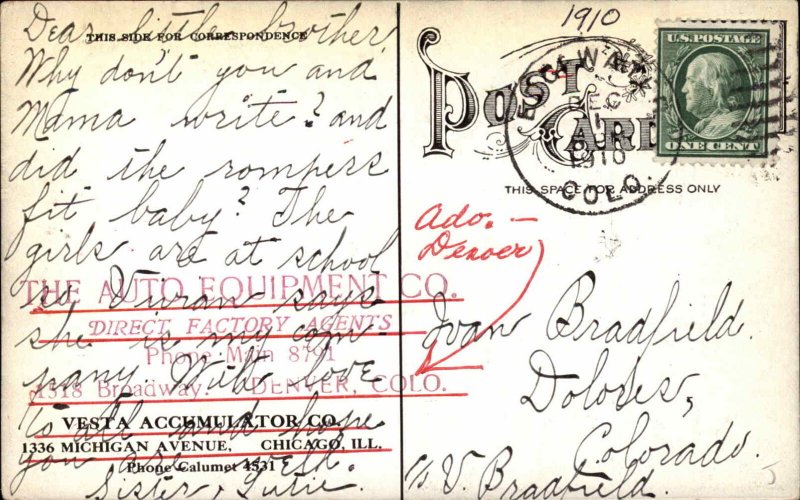 Dear little brother,
THIS SIDE FOR CORRESPONDENCE
Why don't you and
Mama write? and
did the rompers
fit baby? The
girls are at school
so Vivian says
she is my com-
pany. With love
to all and hope
you are well.
Sister,
THE AUTO EQUIPMENT CO.
DIRECT FACTORY AGENTS
Phone Main 8791
1318 Broadway. DENVER, COLO.
VESTA ACCUMULATOR CO.
1336 MICHIGAN AVENUE, CHICAGO, ILL.
Phone Calumet 4531
1910
POST
CARD
U.S. POSTAGE
ONE CENT
1910
COLO.
THIS SPACE FOR ADDRESS ONLY
Adv. —
Denver
Ivan Bradfield.
Dolores,
Colorado.
V. Bradfield.